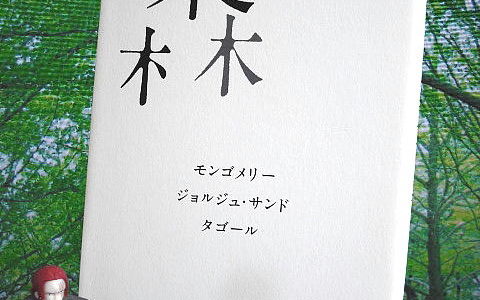 木木
モンゴメリー
ジョルジュ・サンド
タゴール